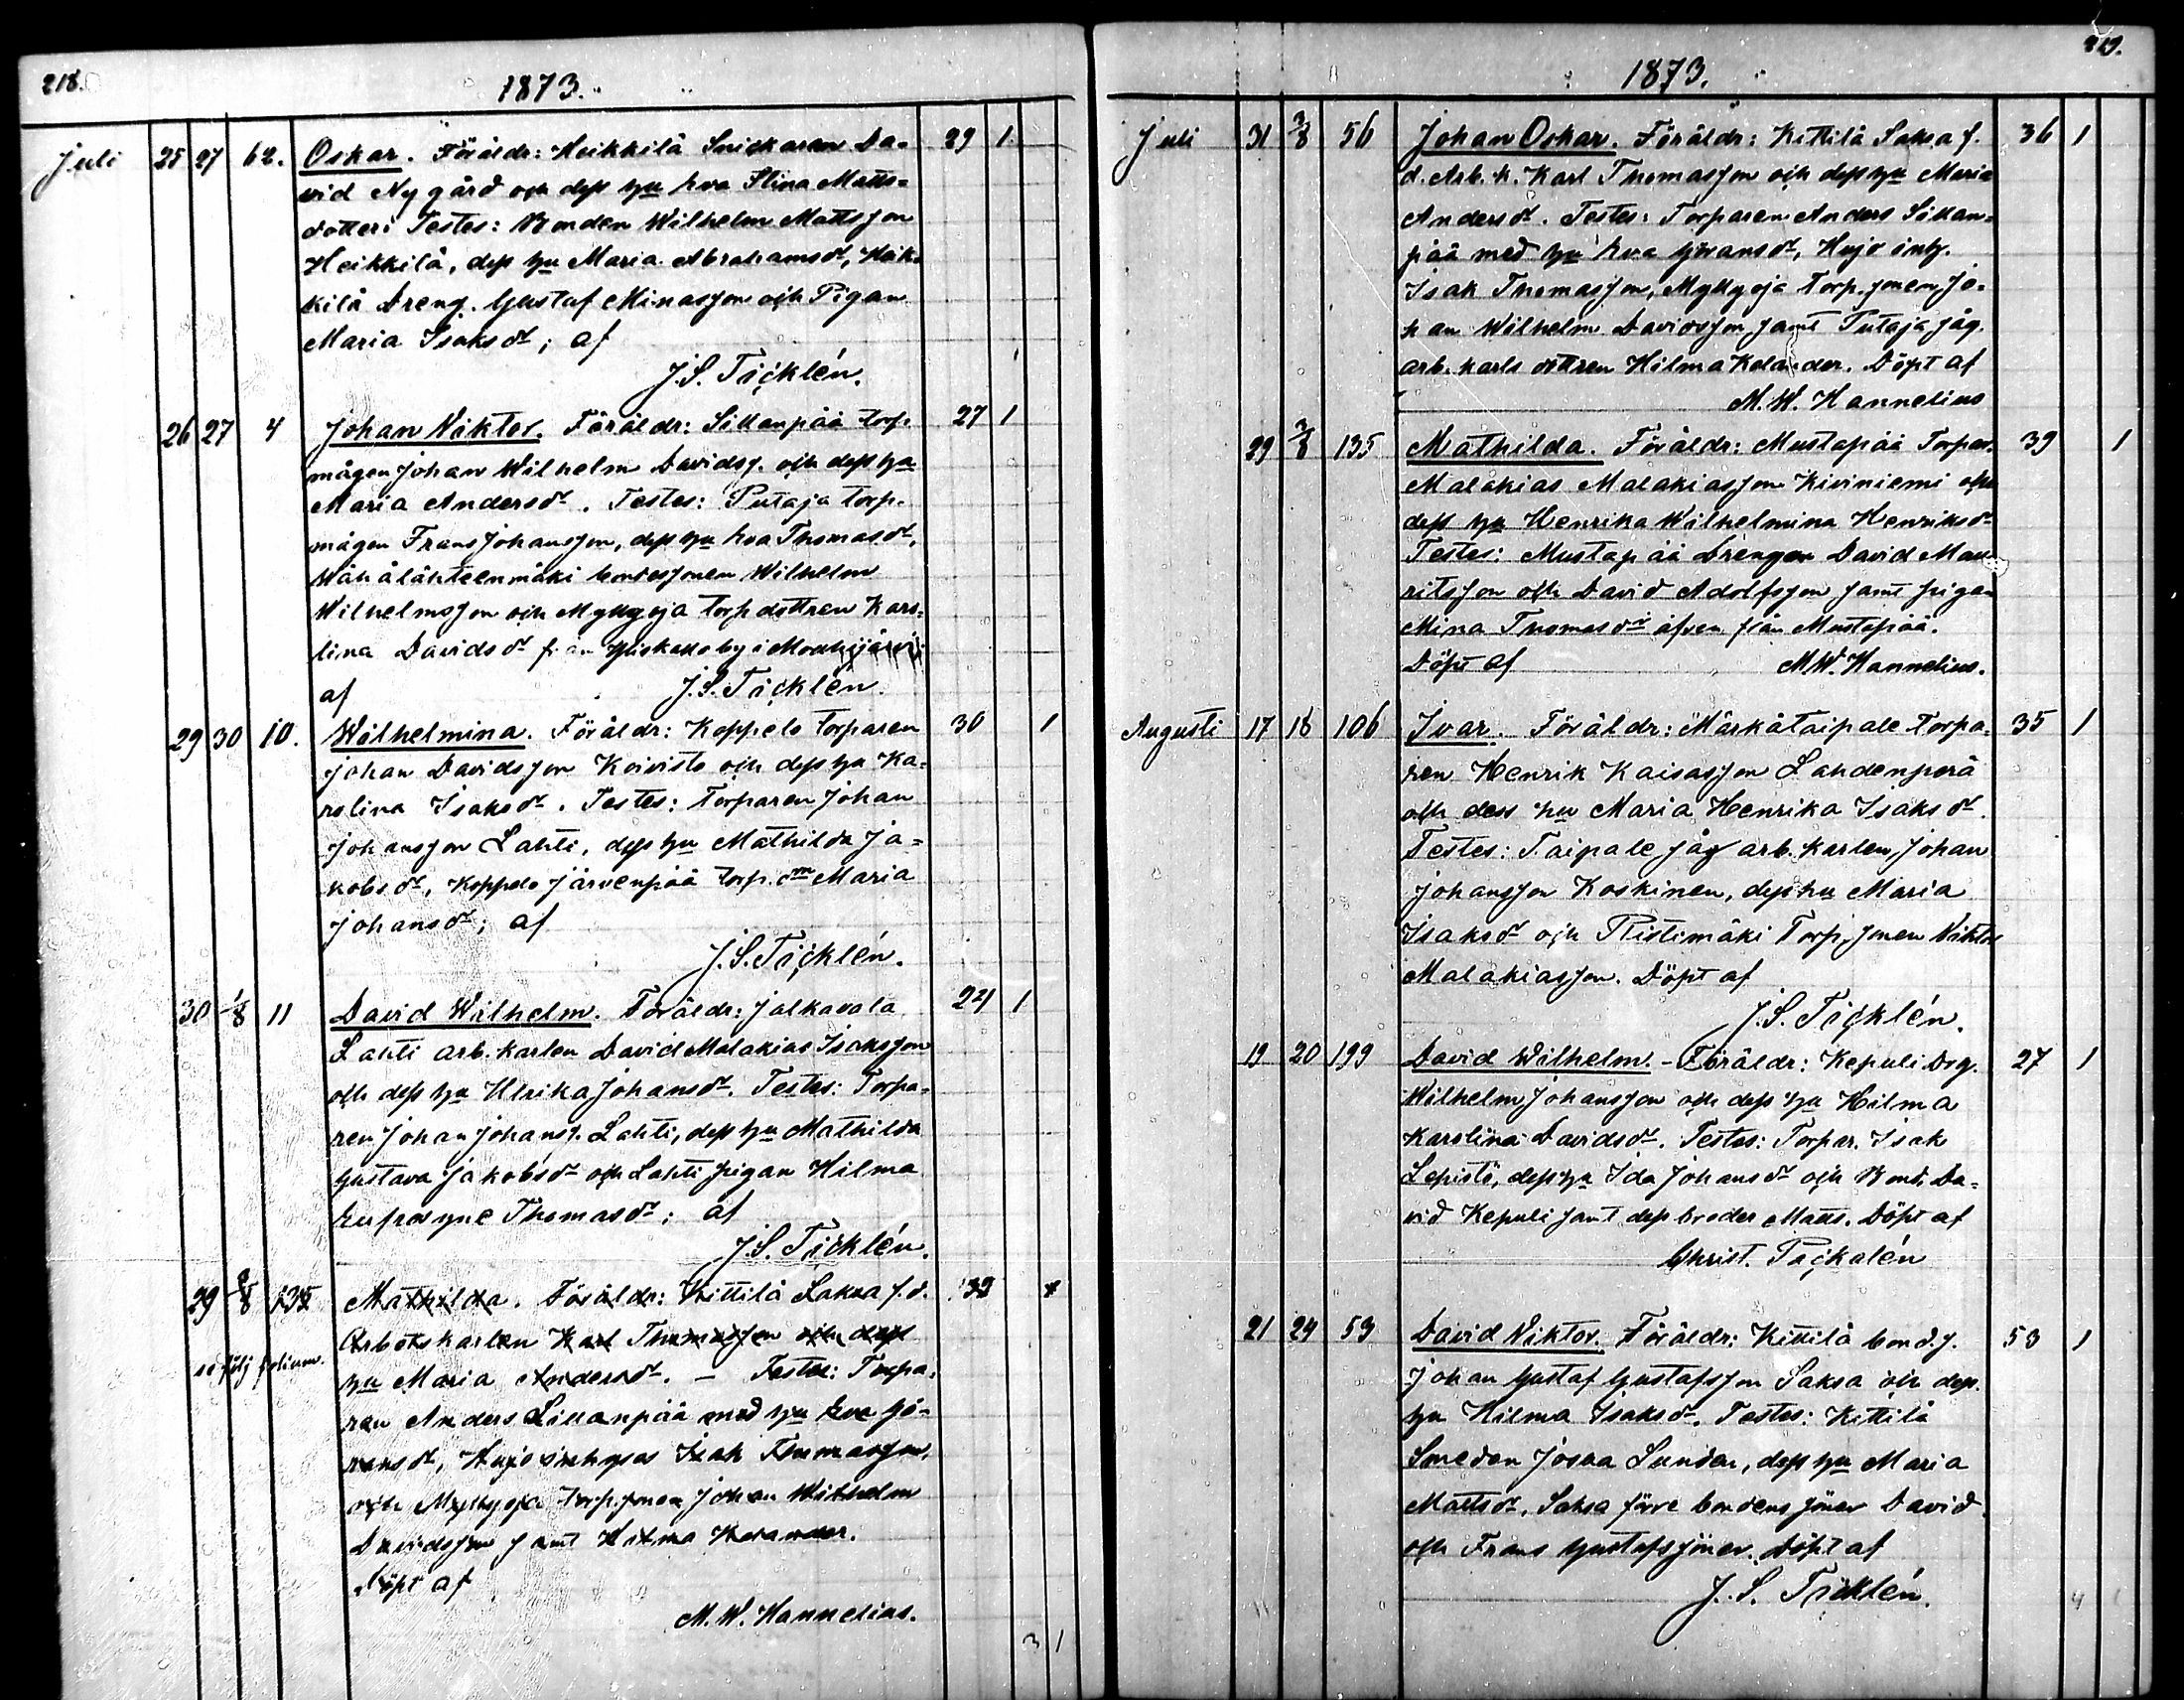 218.
1873.
Juli 25 27 62. Oskar. Föräldr: Heikkilä Snickaren Da= 29 1
vid Nygård och dess hu Eva Stina Matts=
dotter. Testes: Bonden Wilhelm Mattsson
Heikkilä, dess hu Maria Abrahamsdr, Heik=
kilä Dreng. Gustaf Minasson och Pigan
Maria Isaksdr; af
J. S. Ticklén.
26 27 4 Johan Viktor. Föräldr: Sillanpää torp. 27 1
mågen Johan Wilhelm Davidss. och dess hu
Maria Andersdr. Testes: Putaja torp.
mågen Frans Johansson, dess hu Eva Thomasdr,
Wähälähteenmäki bondesonen Wilhelm
Wilhelmsson och Myllyoja torp dottren Karo=
lina Davidsdr från by i Mouhijärvi
af J. S. Ticklén.
29 30 10. Wilhelmina. Föräldr: Koppelo torparen 30 1
Johan Davidsson Koivisto och dess hu Ka=
rolina Isaksdr. Testes: torparen Johan
Johansson Lahti, dess hu Mathilda Ja=
kobsdr, Koppelo Järvenpää torp. Maria
Johansdr; af
J. S. Ticklén.
30 1/8 11 David Wilhelm. Föräldr: Jalkavala 24 1
Lahti arb. karlen David Malakias Isaksson
och dess hu Ulrika Johansdr. Testes: Torpa=
ren Johan Johanss. Lahti, dess hu Mathilda
Gustava Jakobsdr och Lahti pigan Hilma
Eufrosyne Thomasdr; af
J. S. Ticklén.
29 2/8 135 Mathilda. Föräldr: Kittilä Saksa f. d. 39
Arbetskarlen Karl Thomasson och dess
se följ folium.
hu Maria Andersdr. – Testes: Torpa=
ren Anders Sillanpää med hu Eva Gö=
ransdr, Hujo inhyses Isak Thomasson,
och Myllyoja torp. sonen Johan Wilhelm
Davidsson samt Hilma Kelander.
Döpt af
M. W. Hannelius.
3 1
219.
1873.
Juli 31 3/8 56 Johan Oskar. Föräldr: Kittilä Saksa f. 36 1
d. Arb. k. Karl Thomasson och dess hu Maria
Andersdr. Testes: Torparen Anders Sillan=
pää med hu Eva Göransdr, Hujo inhy.
Isak Thomasson, Myllyoja Torp. sonen Jo=
han Wilhelm Davidsson samt Putaja såg.
arb. karls dottren Hilma Kelander. Döpt af
M. W. Hannelius
29 3/8 135 Mathilda. Föräldr: Mustapää Torpar. 39 1
Malakias Malakiasson Kiviniemi och
dess hu Henrika Wilhelmina Henriksdr
Testes: Mustapää Drengen David Mau
ritsson och David Adolfsson samt pigan
Mina Thomasdr äfven från Mustapää.
Döpt af M. W. Hannelius.
Augusti 17 18 106 Ivar. Föräldr: Märkätaipale Torpa= 35 1
ren Henrik Kaisasson Lahdenperä
och dess hu Maria Henrika Isaksdr.
Testes: Taipale såg arb. karlen, Johan
Johansson Koskinen, dess hu Maria
Isaksdr och Ristimäki Torp. sonen Viktor
Malakiasson. Döpt af
J. S. Ticklén.
19 20 199 David Wilhelm. – Föräldr: Kepuli Drg. 27 1
Wilhelm Johansson och dess hu Hilma
Karolina Davidsdr. Testes: Torpar. Isak
Lepistö, dess hu Ida Johansdr och Bond. Da=
vid Kepuli samt dess broder Matts. Döpt af
Christ. Täckalén
21 24 53 David Viktor. Föräldr: Kittilä bond. s. 53 1
Johan Gustaf Gustafsson Saksa och dess
hu Hilma Isaksdr. Testes: Kittilä
Smeden Josua Lunden, dess hu Maria
Mattsdr, Saksa förre bondens söner David
och Frans Gustafssöner. Döpt af
J. S. Ticklén.
4